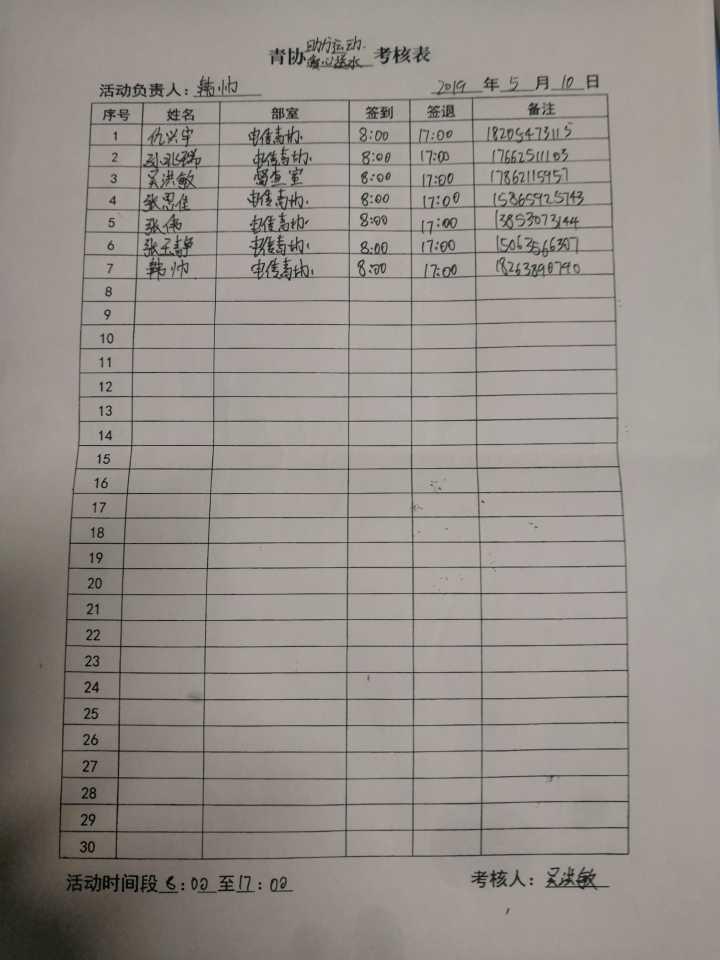 青协助力运动 爱心送水考核表
活动负责人：韩帅 2019 年 5 月 10 日
序号 姓名 部室 签到 签退 备注
1 仇兴宇 电信青协 8:00 17:00 18205473115
2 电信青协 8:00 17:00 17662511103
3 吴洪敏 督查室 8:00 17:00 17862115957
4 张思佳 电信青协 8:00 17:00 15865925743
5 张伟 电信青协 8:00 17:00 13853073144
6 电信青协 8:00 17:00 15063566307
7 韩帅 电信青协 8:00 17:00 18263890790
8
9
10
11
12
13
14
15
16
17
18
19
20
21
22
23
24
25
26
27
28
29
30
活动时间段 8:00 至 17:00 考核人：吴洪敏